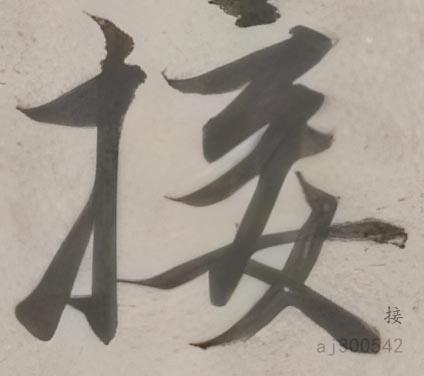 接
接
aj300542